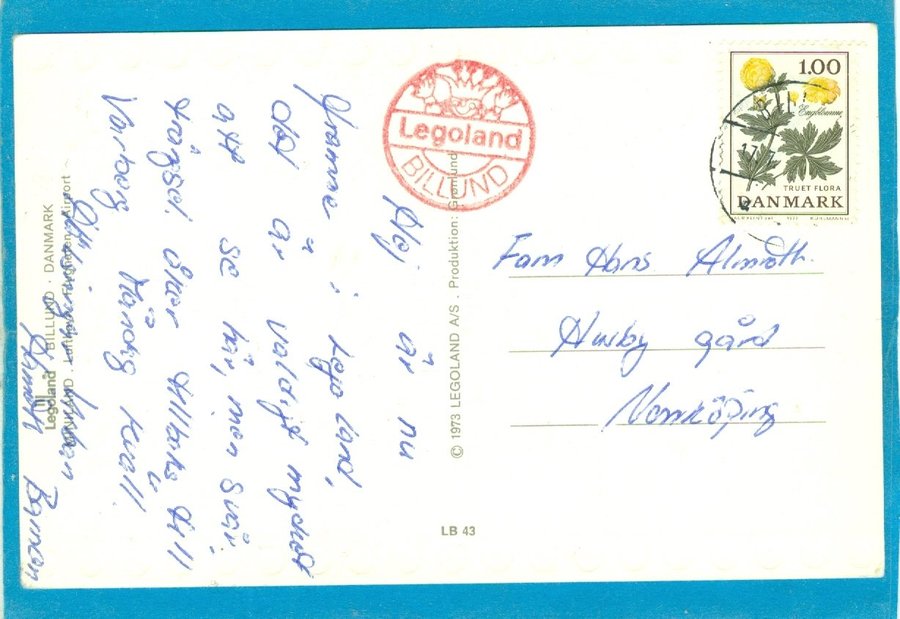 Hej är nu
framme i Lego land,
det är väldigt mycket
att se här, men svår
trängsel. Åker tillbaks till
Varberg Måndag kväll.
Hälsningar
Almroth Barnen
Legoland BILLUND · DANMARK
MINILAND . Lufthavn . Flughafen . Airport
© 1973 LEGOLAND A/S . Produktion: Grønlund
LB 43
Legoland
BILLUND
1.00
Engblomme
TRUET FLORA
DANMARK
Fam Hans Almroth.
Husby gård
Norrköping